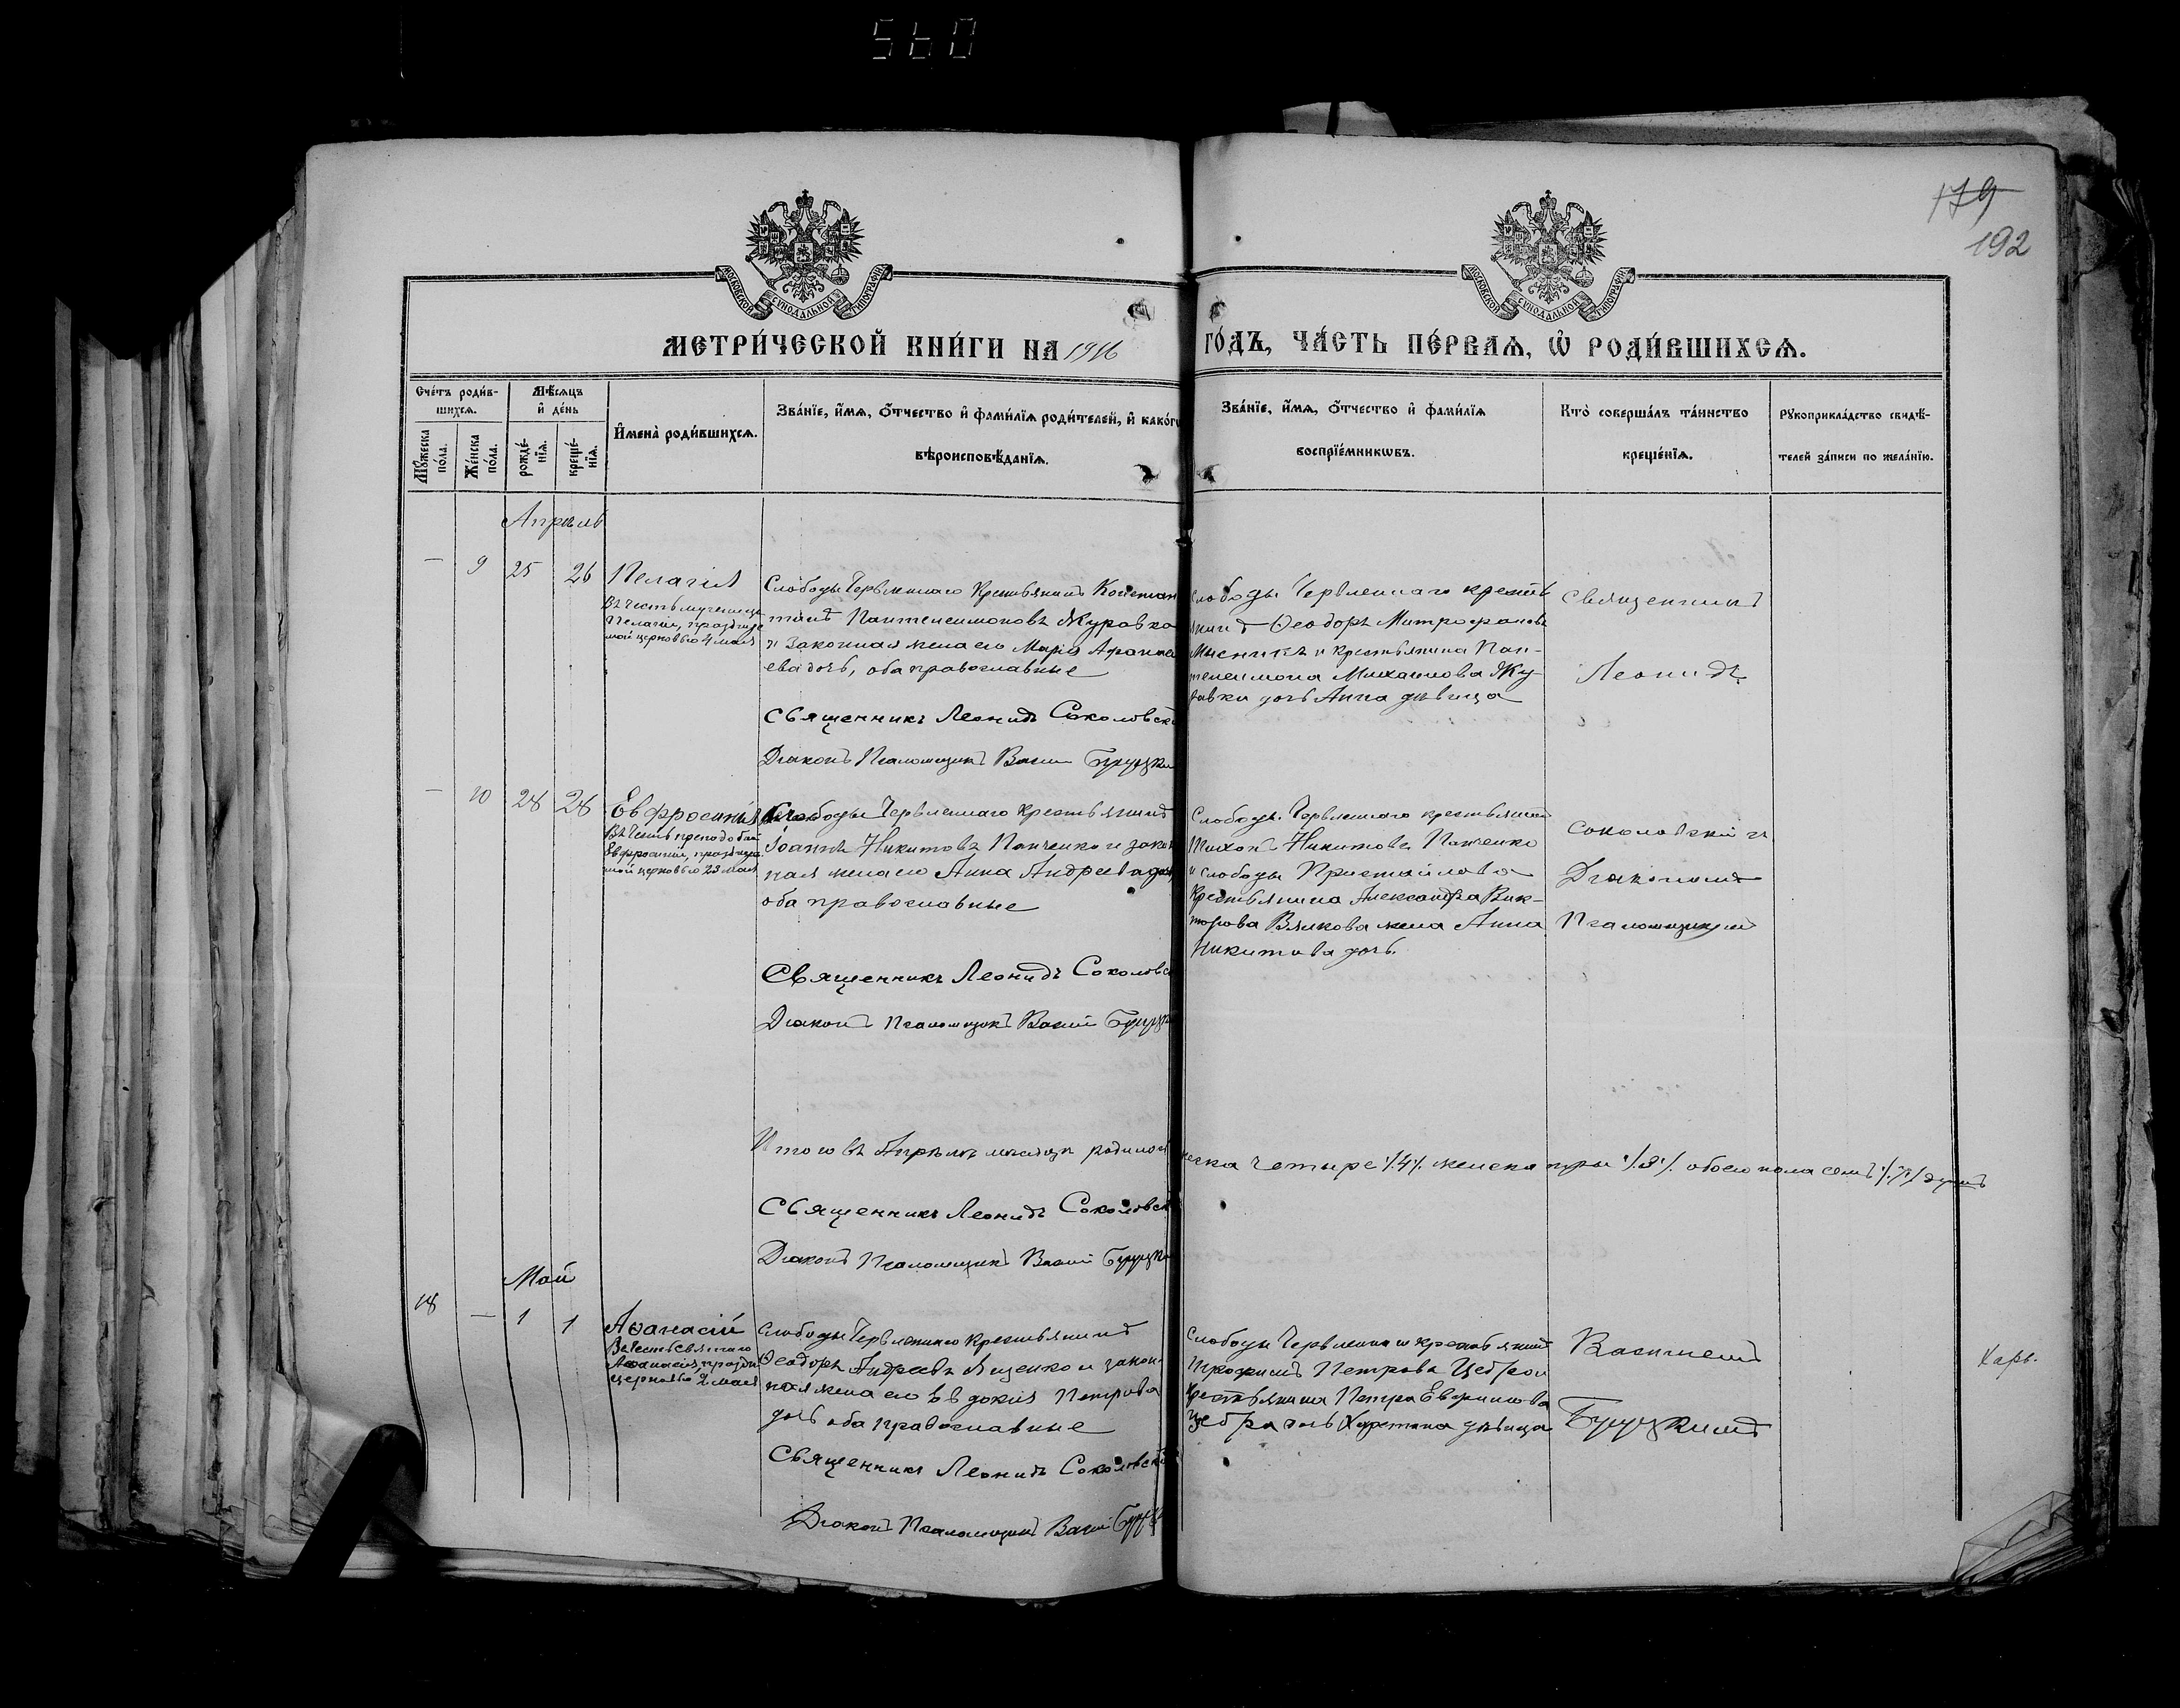 560
179
192
МОСКОВСКОЙ СУНОДАЛЬНОЙ ТИПОГРАФІИ
МОСКОВСКОЙ СУНОДАЛЬНОЙ ТИПОГРАФІИ
МЕТРИ́ЧЕСКОЙ КНИ́ГИ НА 1916 ГО́ДЪ, ЧА́СТЬ ПЕ́РВАѦ, Ѡ РОДИ́ВШИХСѦ.
Сче́тъ роди́в-
шихсѧ.
Мꙋ́жеска
по́ла.
Же́нска
по́ла.
Мѣ́сѧцъ
и҆ де́нь
рожде́-
нїѧ.
креще́-
нїѧ.
И҆мена̀ роди́вшихсѧ.
Зва́нїе, и҆́мѧ, о҆́тчество и҆ фами́лїѧ роди́телей, и҆ како́гѡ
вѣроисповѣ́данїѧ.
Зва́нїе, и҆́мѧ, о҆́тчество и҆ фами́лїѧ
воспрїе́мникѡвъ.
Кто̀ соверша́лъ та́инство
креще́нїѧ.
Рꙋкоприкла́дство свидѣ́-
телей за́писи по жела́нїю.
Апрѣль
— 9 25 26 Пелагія
Въ честь мученицы
Пелагіи, празднуе
мой церковью 4 мая
Слободы Червленнаго Крестьянинъ Констан
тинъ Пантелеимоновъ Журавка
и законная жена его Марія Афанась
ева дочь, оба православные
Священникъ Леонидъ Соколовскі
Діаконъ Псаломщикъ Васи Буруцки
Слободы Червленнаго кресть
янинъ Ѳеодоръ Митрофановъ
Мысникъ и крестьянина Пан-
телеимона Михаилова Жу
равки дочь Анна дѣвица
Священникъ
Леонидъ
— 10 28 28 Евфросинія
Въ честь преподобной
Евфросиніи, праздную
мой церковью 23 мая
Слободы Червленнаго крестьянинъ
Іоаннъ Никитовъ Панченко и закон
ная жена его Анна Андреева дочь
оба православные
Священникъ Леонидъ Соколовс
Діаконъ Псаломщикъ Васи Буруцк
Слободы Червленнаго крестьянинъ
Тихонъ Никитовъ Панченко
и слободы
Крестьянина Александра Вик-
торова жена Анна
Никитова дочь.
Соколовскій и
Діакономъ
Псаломщикомъ
Итого въ Апрѣлѣ мѣсяцѣ родилось
жеска четыре /4/ женска три /3/ обоего пола семь /7/ душъ
Священникъ Леонидъ Соколовск
Діаконъ Псаломщикъ Васи Буруцки
Май
18 — 1 1 Аѳанасій
Въ честь Святаго
Аѳанасія, праздн
церковью 2 мая
Слободы Червленнаго Крестьянинъ
Ѳеодоръ Андреевъ Яценко и закон-
ная жена его Евдокія Петрова
дочь оба православные
Священникъ Леонидъ Соколовскі
Діаконъ Псаломщикъ Васи Буруцк
Слободы Червленнаго крестьянинъ
Трофимъ Петровъ Цебро и
крестьянина Петра
Цебра дочь Христина дѣвица
Василіемъ
Буруцкимъ
Харь.